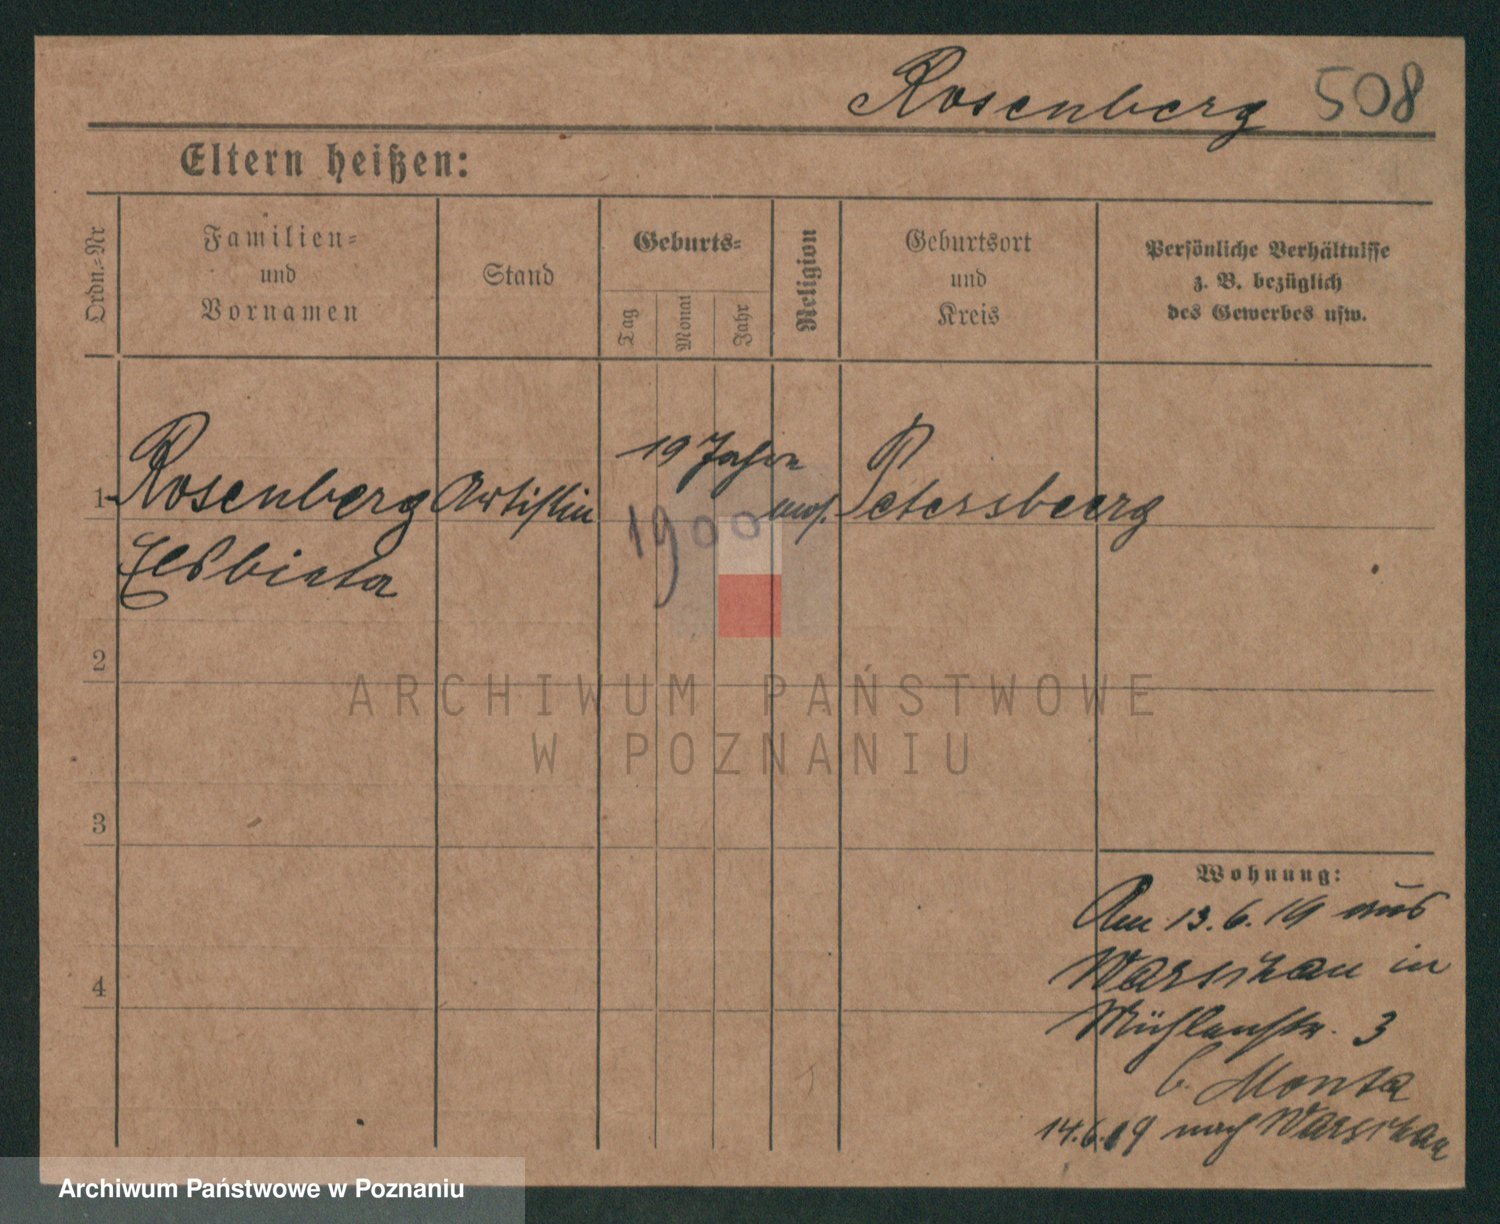 Rosenberg 508
Eltern heißen:
Ordn.-Nr
Familien-
und
Vornamen
Stand
Geburts-
Tag
Monat
Jahr
Religion
Geburtsort
und
Kreis
Persönliche Verhältnisse
z. B. bezüglich
des Gewerbes usw.
19 Jahre
1 Rosenberg Artistin mos. Petersburg
1900
Elsbieta
2
ARCHIWUM PAŃSTWOWE
W POZNANIU
3
Wohnung:
Am 13.6.19 aus
Warschau in
4
Mühlenstr. 3
b. Monta
14.6.19 nach Warschau
Archiwum Państwowe w Poznaniu